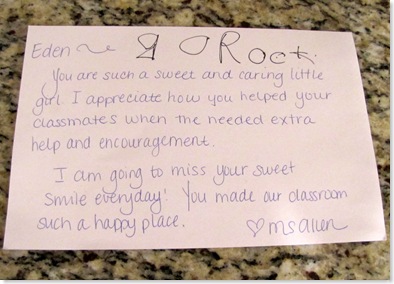 Eden ~ I Rock
You are such a sweet and caring little
girl. I appreciate how you helped your
classmates when the needed extra
help and encouragement.
I am going to miss your sweet
smile everyday! You made our classroom
such a happy place. ♡ms allen